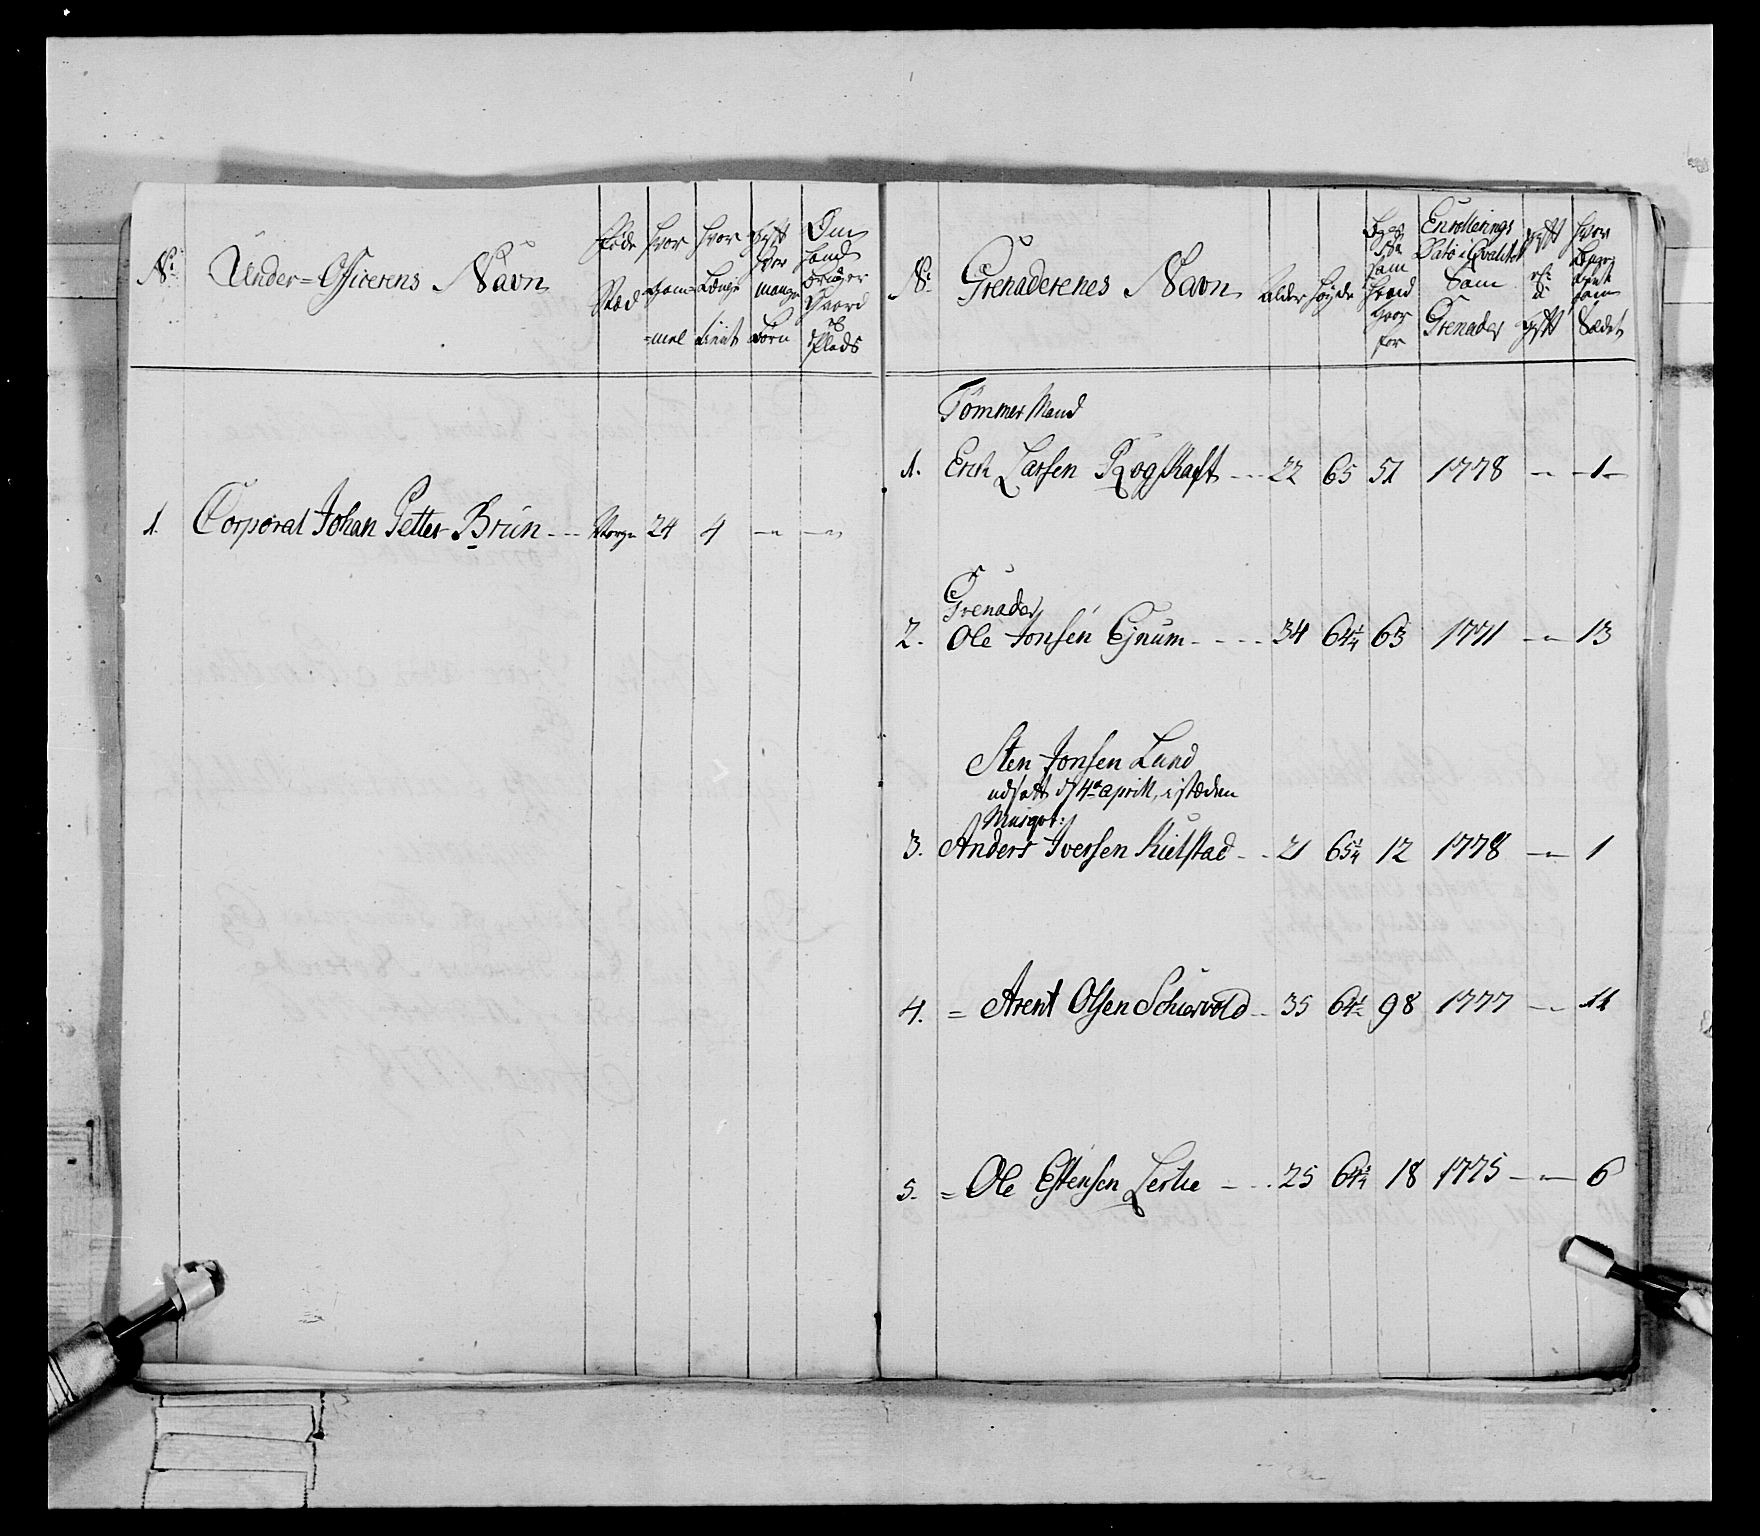 No Under=Officerens Navn
Føde Stad
hvor Gam=mel
hvor Længe tient
gift hvor mange Børn
Om hand bruger Gaard el: Plads
1. Corporal Johan Petter Brun --- Norge 24 4 -- --
No Grenaderenes Navn
alder
høyde
Enrollerings Dato i Qvalitet Som Grenader
gift el: u gift
hvor Længe tient som Soldat
Tømmer Mand
1. Erich Larsen Rogstaft --- 22 65 51 1778 -- -1-
Grenader
2. Ole Jonsen Ejnum ---- 34 64¼ 63 1771 -- 13
Sten Jonsen Lund
udsatt d 4de april, i stæden
Musqvt:
3. Anders Iversen Kielstad -- 21 65¼ 12 1778 -- 1
4. = Arent Olsen Schiervold -- 35 64½ 98 1777 -- 11
5. = Ole Estensen Lerlie --- 25 64¾ 18 1775 -- 6